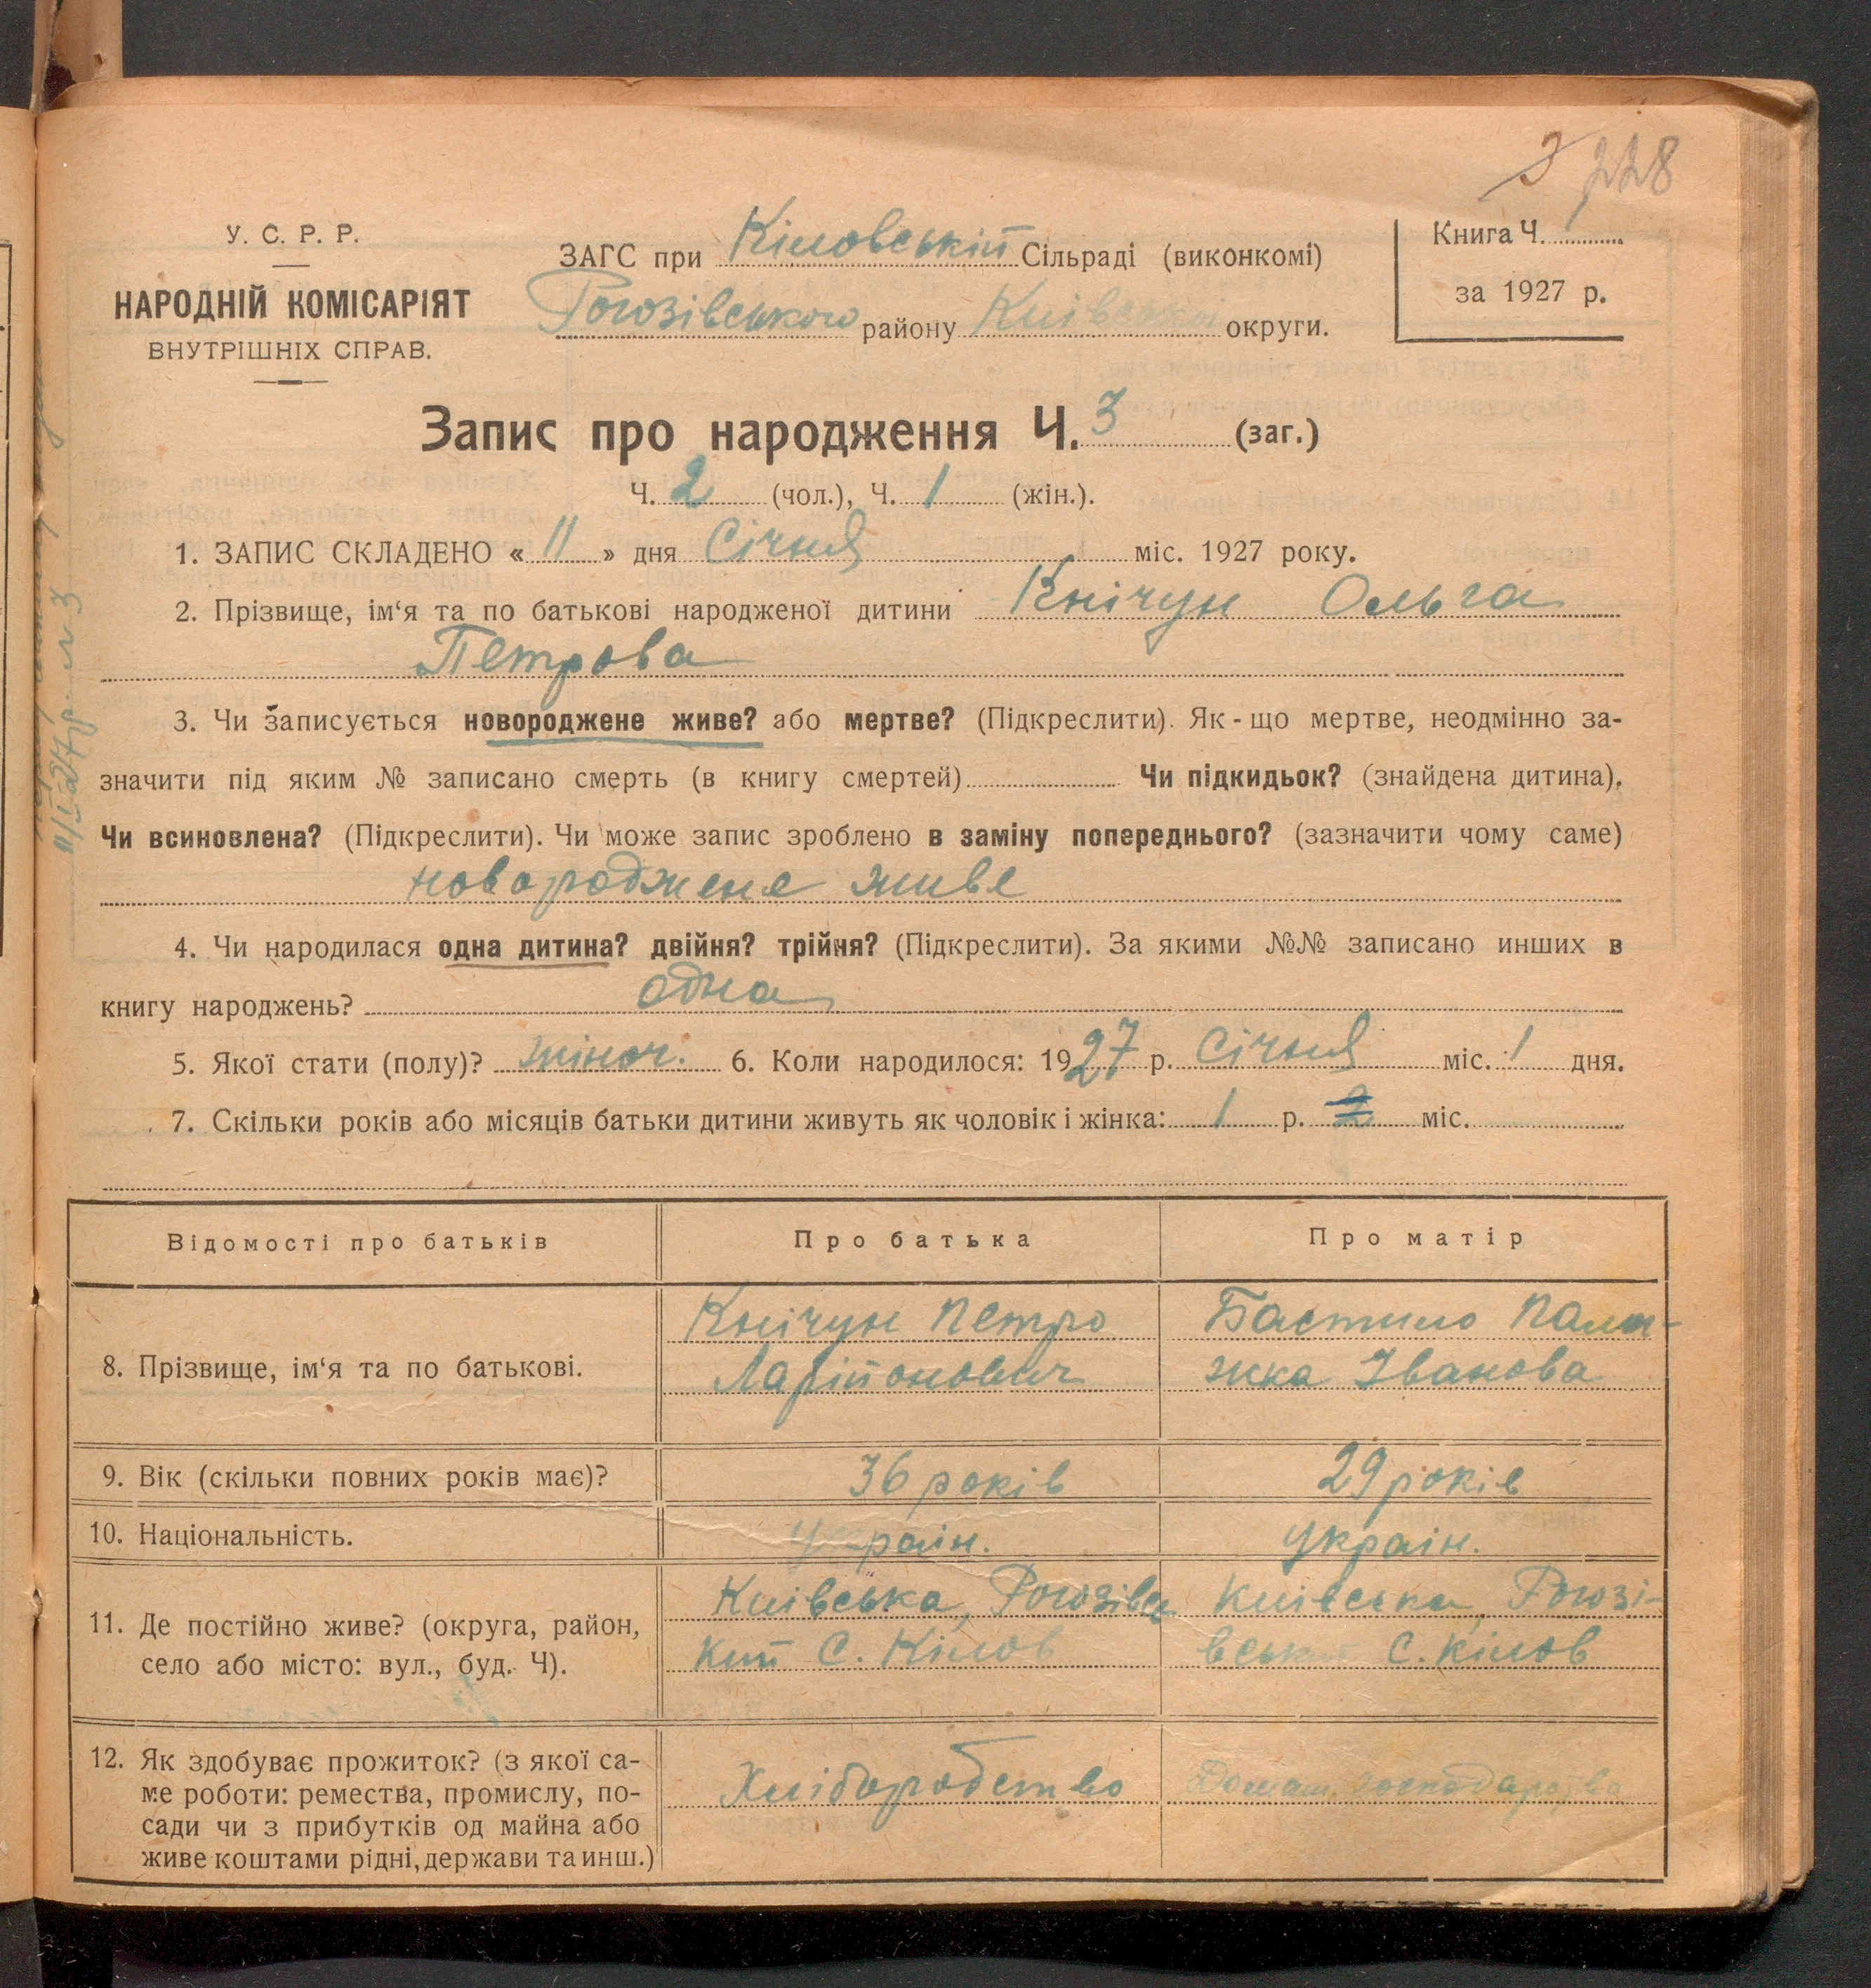 3 228
У. С. Р. Р.
НАРОДНІЙ КОМІСАРІЯТ
ВНУТРІШНІХ СПРАВ.
ЗАГС при Кіловській Сільраді (виконкомі)
Рогозівського району Київської округи.
Книга Ч.
за 1927 р.
Запис про народження Ч. 3 (заг.)
Ч. 2 (чол.), Ч. 1 (жін.).
1. ЗАПИС СКЛАДЕНО « 11 » дня Січня міс. 1927 року.
2. Прізвище, ім‘я та по батькові народженої дитини Кнічун Ольга
Петрова
3. Чи записується новороджене живе? або мертве? (Підкреслити). Як-що мертве, неодмінно за-
значити під яким № записано смерть (в книгу смертей) Чи підкидьок? (знайдена дитина).
Чи всиновлена? (Підкреслити). Чи може запис зроблено в заміну попереднього? (зазначити чому саме)
новороджене живе
4. Чи народилася одна дитина? двійня? трійня? (Підкреслити). За якими №№ записано инших в
книгу народжень? одна
5. Якої стати (полу)? жіноч. 6. Коли народилося: 1927 р. Січня міс. 1 дня.
7. Скільки років або місяців батьки дитини живуть як чоловік і жінка: 1 р. 2 міс.
Відомості про батьків Про батька Про матір
8. Прізвище, ім‘я та по батькові.
Кнічун Петро
Ларійонович
Бастило Пала-
жка Іванова
9. Вік (скільки повних років має)? 36 років 29 років
10. Національність. Україн. Україн.
11. Де постійно живе? (округа, район,
село або місто: вул., буд. Ч).
Київська, Рогозівсь
кий С. Кілов
Київська, Рогозі-
вський С. Кілов
12. Як здобуває прожиток? (з якої са-
ме роботи: ремества, промислу, по-
сади чи з прибутків од майна або
живе коштами рідні, держави та инш.)
Хліборобство
Домаш. господарство